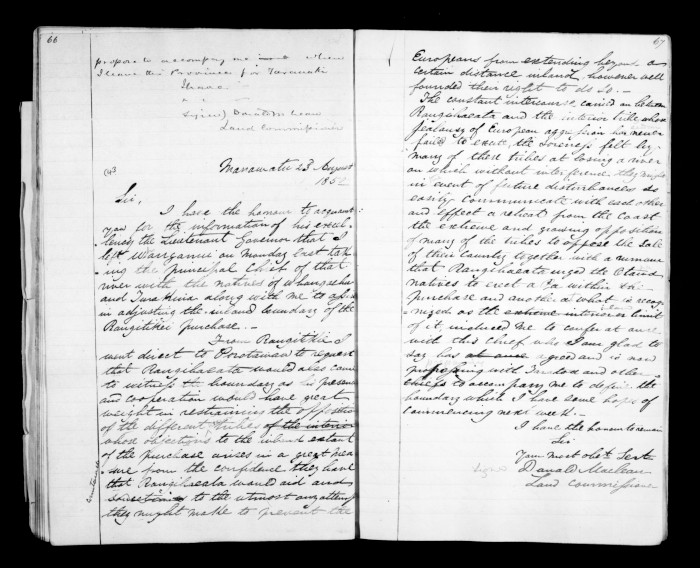 66
propose to accompany me when
I leave this Province for Taranaki
I have
Signed) Donald McLean
Land Commissioner
(43
Manawatu 23 August
1852
Sir,
I have the honour to acquaint
you for the information of his excel-
lency the Lieutenant Governor that I
left Wanganui on Monday last tak-
ing the principal Chief of that
river with the natives of Whangaehu
and Turakina along with me to
in adjusting the inland boundary of the
Rangitikei purchase. -
From Rangitikei I
went direct to Porotawao to request
that Rangihaeata would also come
to witness the boundary as his presence
and cooperation would have great
weight in restraining the opposition
of the different tribes of the interior
whose objections to the inland extent
of the purchase arises in a great mea-
sure from the confidence they have
that Rangihaeata would aid and
to the utmost any attempt
they might make to prevent the
67
Europeans from extending beyond a
certain distance inland, however well
founded their right to do so. -
The constant intercourse carried on between
Rangihaeata and the interior tribe whose
jealousy of European aggression he never
fails to excite, the soreness felt by
many of these tribes at losing a river
on which without interference they might
in event of future disturbances so
easily communicate with each other
and effect a retreat from the Coast
the extreme and growing opposition
of many of the tribes to oppose the Sale
of their Country together with a rumour
that Rangihaeata urged the
natives to erect a Pa within the
purchase and another at what is recog-
nized as the extreme interior limit
of it, induced me to confer at once
with this Chief who I am glad to
say has at once agreed and is now
proposing with and other
Chiefs to accompany me to define the
boundary which I have some hopes of
Commencing next week. -
I have the honour to remain
Sir
Your most obt. Servt
Signed Donald McLean
Land Commissioner